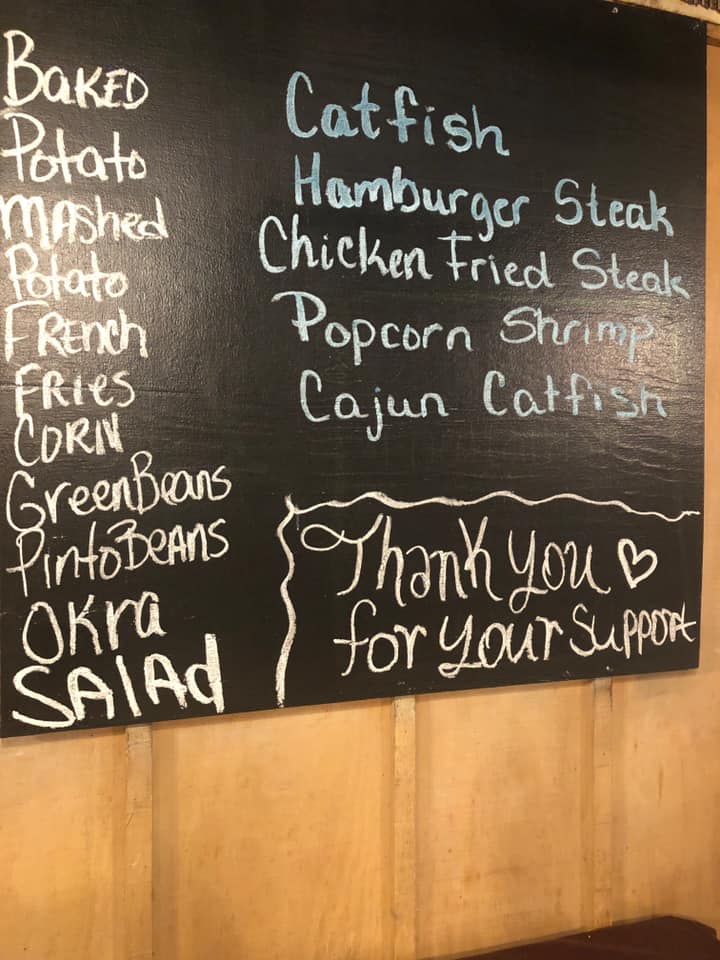 BaKED
Potato
MAshed
Potato
FREnch
FRIES
CORN
GreenBeans
PintoBeAns
OKra
SAlAd
Catfish
Hamburger Steak
Chicken Fried Steak
Popcorn Shrimp
Cajun Catfish
Thank you
for your Support